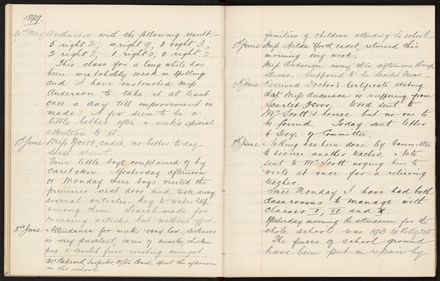 1899.
31st May Arithmetic with the following result:-
5 right 2, 4 right 9, 3 right 3,
2 right 2, 1 right 0, 0 right 2.
This class for a long while has
been wretchedly weak in spelling
and I have instructed Miss
Anderson to take it at least
once a day till improvement is
made. It far seems to be a
little better after a week's special
attention to it.
1st June Miss York, cadet, no letter to day.
Still absent.
Four little boys complained of by
caretaker. Yesterday afternoon
or Monday these boys visited the
premises next door and took away
several articles - key to water tap
among them. Search made for
missing articles but without effect.
2nd June Attendance for week very low, sickness
is very prevalent, cases of measles, chicken
pox & scarlet fever existing amongst
Mr Bakewell, Inspector of the Board spent the afternoon
in the school.
families of children attending the school.
5th June Miss Hilda York, cadet, returned this
morning very weak.
Miss Anderson away this afternoon through
illness. Supposed to be Scarlet Fever.
6th June Received Doctor's Certificate stating
that Miss Anderson is suffering from
Scarlet Fever. Word sent to
Mr Scott's house but no one to
be found. Today sent letter
to Secy. of Committee.
8th June Nothing has been done by Committee
to secure another teacher. Note
sent to Mr Scott urging him to
write at once for a relieving
teacher.
Since Monday I have had both
classrooms to manage with
classes
Yesterday morning the attendance for the
whole school was 193
The fences of school ground
have been put in repair by